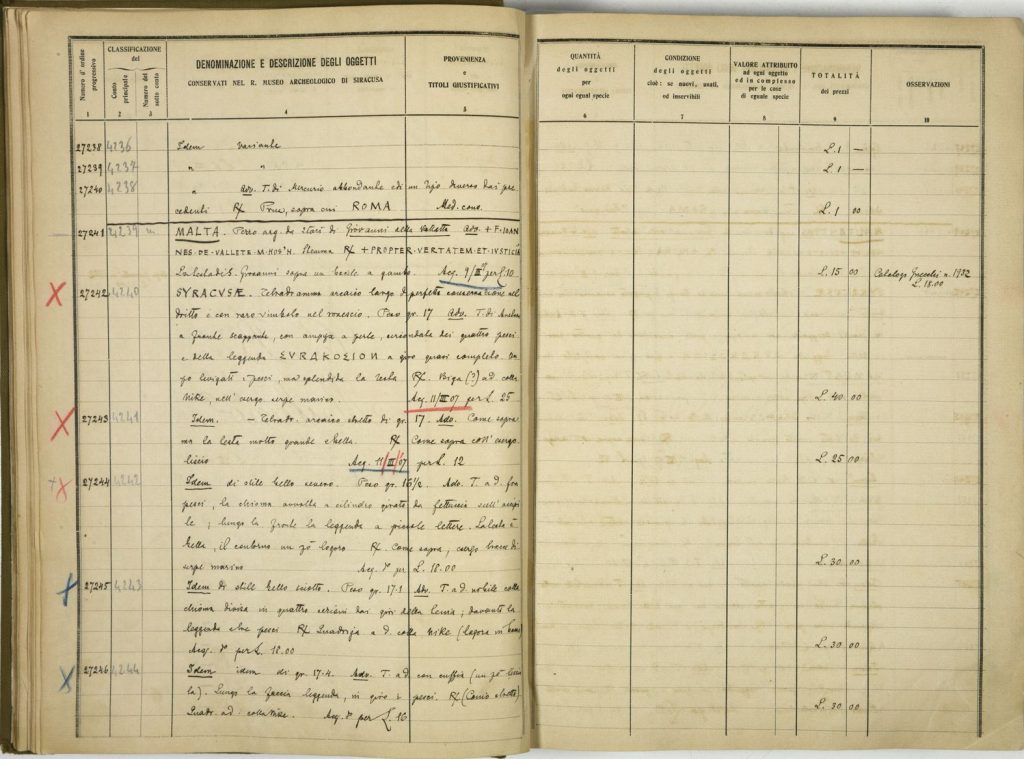 Numero d'ordine progressivo
CLASSIFICAZIONE del
Conto principale
Numero del sotto conto
DENOMINAZIONE E DESCRIZIONE DEGLI OGGETTI
CONSERVATI NEL R. MUSEO ARCHEOLOGICO DI SIRACUSA
PROVENIENZA
e
TITOLI GIUSTIFICATIVI
QUANTITÀ
degli oggetti
per
ogni egual specie
CONDIZIONE
degli oggetti
cioè: se nuovi, usati,
od inservibili
VALORE ATTRIBUITO
ad ogni oggetto
od in complesso
per le cose
di eguale specie
TOTALITÀ
dei prezzi
OSSERVAZIONI
1 2 3 4 5 6 7 8 9 10
27238 4236 Idem variante L. 1 —
27239 4237 " " L. 1 —
27240 4238 " Adv. T. di Mercurio abbondante e di un tipo diverso dai pre
cedenti R/ Prua, sopra cui ROMA Med. cons. L. 1 00
27241 4239 MALTA. Pezzo arg. da 2 tarì di Giovanni alla Valletta Adv. + F. IOAN
NES · DE · VALLETE · M · HOSP · H. Stemma R/ + PROPTER · VERTATEM · ET · IVSTICIA
La testa di S. Giovanni sopra un bacile a gambo. Acq. 9/III 07 per L. 10 L. 15 00
L. 18.00
X 27242 4240 SYRACVSÆ. Tetradramma arcaico largo di perfetta conservazione nel
dritto e con raro simbolo nel rovescio. Peso gr. 17 Adv. T. di
a fronte scappante, con ampyx a perle, circondata dei quattro pesci
e della leggenda ΣVRAKOΣION a giro quasi completo. Un
po' levigati i pesci, ma splendida la testa R/. Biga (?) a d. colla
Nike, nell' exergo serpe marino. Acq. 11/III 07 per L. 25 L. 40 00
X 27243 4241 Idem. — Tetradr. arcaico stretto di gr. 17. Adv. Come sopra
ma la testa molto grande e bella. R/ Come sopra coll' exergo
liscio Acq. 11/III/07 per L. 12 L. 25 00
+X 27244 4242 Idem di stile bello severo. Peso gr. 16 1/2. Adv. T. a d. fra
pesci, la chioma avvolta a cilindro girata da fettuccia sull' occipi
te; lungo la fronte la leggenda a piccole lettere. La testa è
bella, il contorno un pò logoro R/. Come sopra, exergo
serpe marino Acq. per L. 18.00 L. 30 00
X 27245 4243 Idem di stile bello sciolto. Peso 17.1 Adv. T. a d. nobile colla
chioma divisa in quattro sezioni dai giri della tenia; davanti la
leggenda e due pesci R/ Quadriga a d. colla Nike (logora in basso)
Acq. per L. 18.00 L. 30 00
X 27246 4244 Idem idem di gr. 17.4. Adv. T. a d. con cuffia (un pò
la). Lungo la faccia leggenda, in giro 2 pesci. R/ (Conio stretto)
Quadr. a d. colla Nike. Acq. per L. 16 L. 30 00